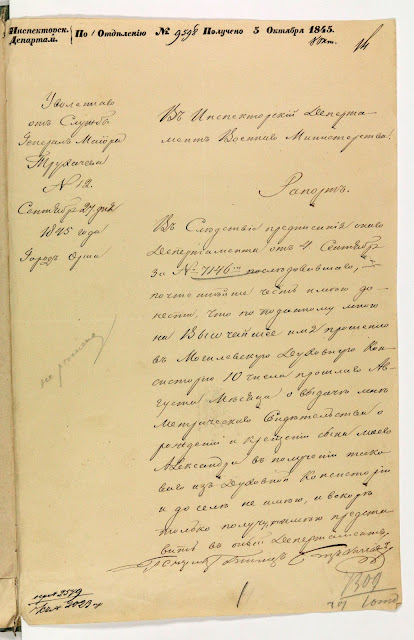 Инспекторск. Департам.
По 1 Отдѣленію № 9598 Получено 5 Октября 1845.
Уволеннаго
отъ Службы
Генералъ Маіора
Трухачева
№ 12.
Сентября 27 дня
1845 года
Городъ Орша
Въ Инспекторскій Департа-
ментъ Военнаго Министерства!
Рапортъ.
Въ Слѣдствіе предписанія онаго
Департамента отъ 4 Сентября
за № 7146мъ послѣдовавшаго,
почтительнѣйше честь имѣю до-
нести, что по поданному мною
на Высочайшее имя прошенію
въ Могилевскую Духовную Кон-
систорію 10 числа прошлаго Ав-
густа Мѣсяца о выдачѣ мнѣ
Метрическаго Свидѣтельства о
рожденіи и крещеніи сына моего
Александра въ полученіи тако-
ваго изъ Духовной Консисторіи
и до селѣ не имѣю, и вскорѣ
только получу имѣю предста-
вить въ оный Департаментъ.